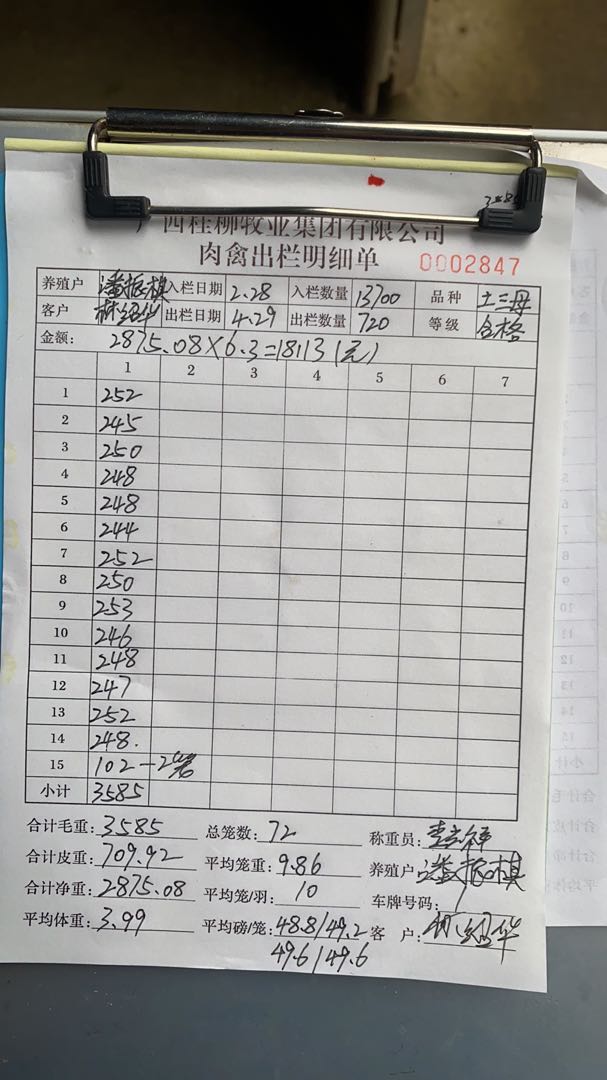 西桂柳牧业集团有限公司
肉禽出栏明细单 0002847
养殖户 潘振棋 入栏日期 2.28 入栏数量 13700 品种 土三母
客户 林绍华 出栏日期 4.29 出栏数量 720 等级 合格
金额: 2875.08×6.3=18113(元)
1 2 3 4 5 6 7
1 252
2 245
3 250
4 248
5 248
6 244
7 252
8 250
9 253
10 246
11 248
12 247
13 252
14 248.
15 102-2笼
小计 3585
合计毛重: 3585 总笼数: 72 称重员:
合计皮重: 709.92 平均笼重: 9.86 养殖户 潘振棋
合计净重: 2875.08 平均笼/羽: 10 车牌号码: /
平均体重: 3.99 平均磅/笼: 48.8/49.2 客 户: 绍华
49.6/49.6